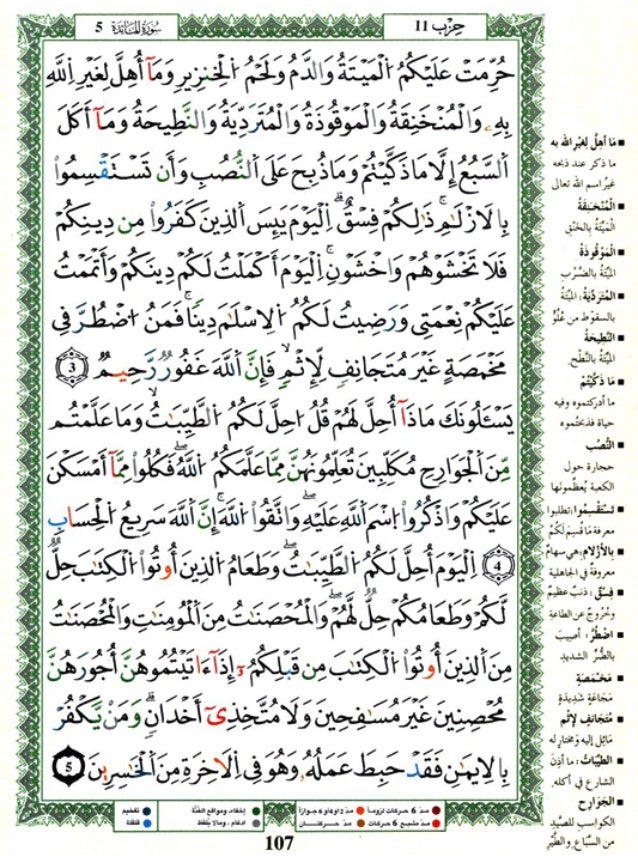 حِزْب 11
سُورَةُ المَائدَة 5
حُرِّمَتْ عَلَيْكُمُ الْمَيْتَةُ وَالدَّمُ وَلَحْمُ الْخِنزِيرِ وَمَآ أُهِلَّ لِغَيْرِ اِللَّهِ
بِهِۦ وَالْمُنْخَنِقَةُ وَالْمَوْقُوذَةُ وَالْمُتَرَدِّيَةُ وَالنَّطِيحَةُ وَمَآ أَكَلَ
اَلسَّبُعُ إِلَّا مَا ذَكَّيْتُمْ وَمَا ذُبِحَ عَلَى النُّصُبِ وَأَن تَسْتَقْسِمُوا
بِالَازْلَٰمِ ذَٰلِكُمْ فِسْقٌ اِلْيَوْمَ يَئِسَ اَلذِينَ كَفَرُوا مِن دِينِكُمْ
فَلَا تَخْشَوْهُمْ وَاخْشَوْنِ اِلْيَوْمَ أَكْمَلْتُ لَكُمْ دِينَكُمْ وَأَتْمَمْتُ
عَلَيْكُمْ نِعْمَتِي وَرَضِيتُ لَكُمُ الِاسْلَٰمَ دِينًا فَمَنُ اضْطُرَّ فِي
مَخْمَصَةٍ غَيْرَ مُتَجَانِفٍ لِّإِثْمٍ فَإِنَّ اَللَّهَ غَفُورٌ رَّحِيمٌ 3
يَسْـَٔلُونَكَ مَاذَآ أُحِلَّ لَهُمْ قُلُ احِلَّ لَكُمُ الطَّيِّبَٰتُ وَمَا عَلَّمْتُم
مِّنَ اَلْجَوَارِحِ مُكَلِّبِينَ تُعَلِّمُونَهُنَّ مِمَّا عَلَّمَكُمُ اللَّهُ فَكُلُوا مِمَّآ أَمْسَكْنَ
عَلَيْكُمْ وَاذْكُرُوا اُسْمَ اَللَّهِ عَلَيْهِ وَاتَّقُوا اللَّهَ إِنَّ اَللَّهَ سَرِيعُ الْحِسَابِ
4 اِلْيَوْمَ أُحِلَّ لَكُمُ الطَّيِّبَٰتُ وَطَعَامُ الذِينَ أُوتُوا الْكِتَٰبَ حِلٌّ
لَّكُمْ وَطَعَامُكُمْ حِلٌّ لَّهُمْ وَالْمُحْصَنَٰتُ مِنَ اَلْمُومِنَٰتِ وَالْمُحْصَنَٰتُ
مِنَ اَلذِينَ أُوتُوا الْكِتَٰبَ مِن قَبْلِكُمُۥٓ إِذَآ ءَاتَيْتُمُوهُنَّ أُجُورَهُنَّ
مُحْصِنِينَ غَيْرَ مُسَٰفِحِينَ وَلَا مُتَّخِذِىٓ أَخْدَانٍ وَمَنْ يَّكْفُرْ
بِالِايمَٰنِ فَقَدْ حَبِطَ عَمَلُهُۥ وَهُوَ فِي اِلَاخِرَةِ مِنَ اَلْخَٰسِرِينَ 5
■ مَا أهِلَّ لِغَيْرِ الله به
ما ذكر عند ذبحه
غيرُ اسم الله تعالى
■ الْمُنْخَنِقَةُ
المَيْتَةُ بِالخَنْقِ
■ الْمَوْقُوذَةُ
الميْتَةُ بالضَّرْبِ
■ الْمُتَرَدِّيَةُ: الميْتَةُ
بالسقوط من عُلُوٍّ
■ النَّطِيحَةُ
الميْتَةُ بالنَّطْح.
■ مَا ذَكَّيْتُمْ
ما أدركتموه وفيه
حياة فذبحتموه
■ النُّصُب
حجارة حول
الكعبة يُعظِّمونها
■ تَسْتَقْسِمُوا: تطلبوا
معرفة مَا قُسِمَ لَكُمْ
■ بالأزلَامِ: هي سهامٌ
معروفةٌ في الجاهلية
■ فِسْقٌ: ذنبٌ عظيمٌ
وخُروجٌ عن الطاعة
■ اضْطُرَّ: أصيبَ
بالضُّرِّ الشديدِ
■ مَخْمَصَةٍ
مَجَاعَةٍ شَدِيدَةٍ
■ مُتَجَانِفٍ لإثْمٍ
مَائِلٍ إليه ومُختارٍ له
■ الطَّيِّبَاتُ: ما أذِنَ
الشارعُ في أكلِه.
■ الجَوَارِح
الكواسبِ للصَّيْدِ
من السِّبَاعِ والطَّيْرِ
مدّ 6 حركات لزوماً مدّ 2 أو 4 أو 6 جوازاً إخفاء، ومواقع الغُنَّة تفخيم
مدّ مشبع 6 حركات مدّ حركتــان إدغام، وما لا يُلفَظ قلقلة
107